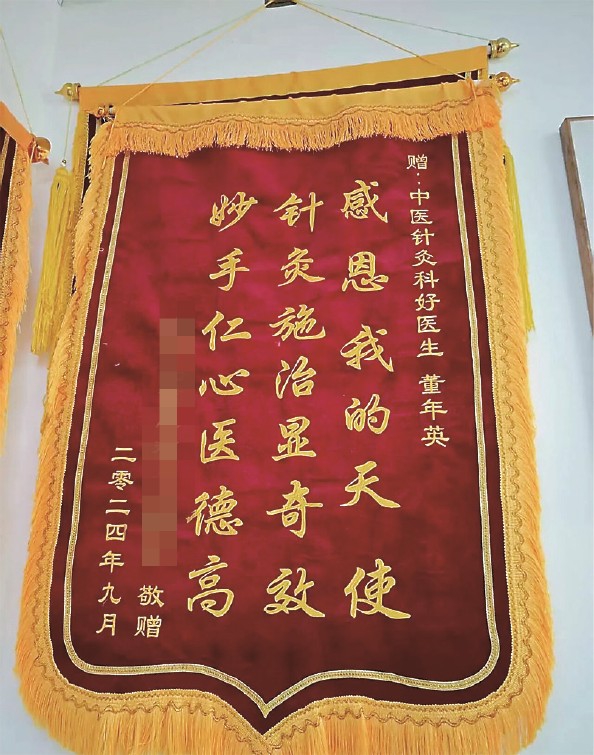 赠：中医针灸科好医生 董年英
感恩我的天使
针灸施治显奇效
妙手仁心医德高
敬赠
二零二四年九月